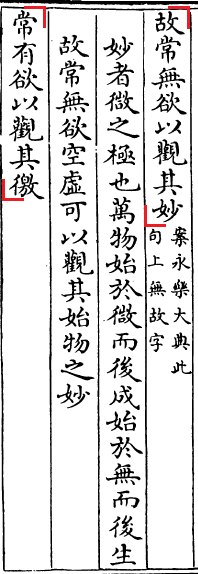 故常無欲以觀其妙
案永樂大典此
句上無故字
妙者微之極也萬物始於微而後成始於無而後生
故常無欲空虛可以觀其始物之妙
常有欲以觀其徼